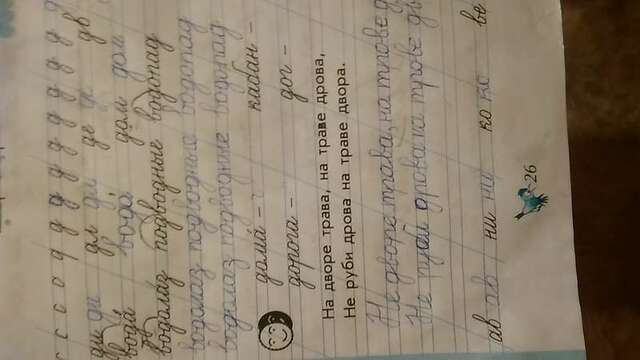 с с с о д д д д д д д д д
ди ди дл дл де де дв
вода́ вода́ дом дом
водолаз подводные водопад
водолаз подводные водопад
водолаз подводные водопад
дома́ – г кабан –
дорога – дог –
На дворе трава, на траве дрова,
Не руби дрова на траве двора.
Не дворе трава, на трове д
Не руби дрова на трове дв
ав ав ни ни ко ко ве
26